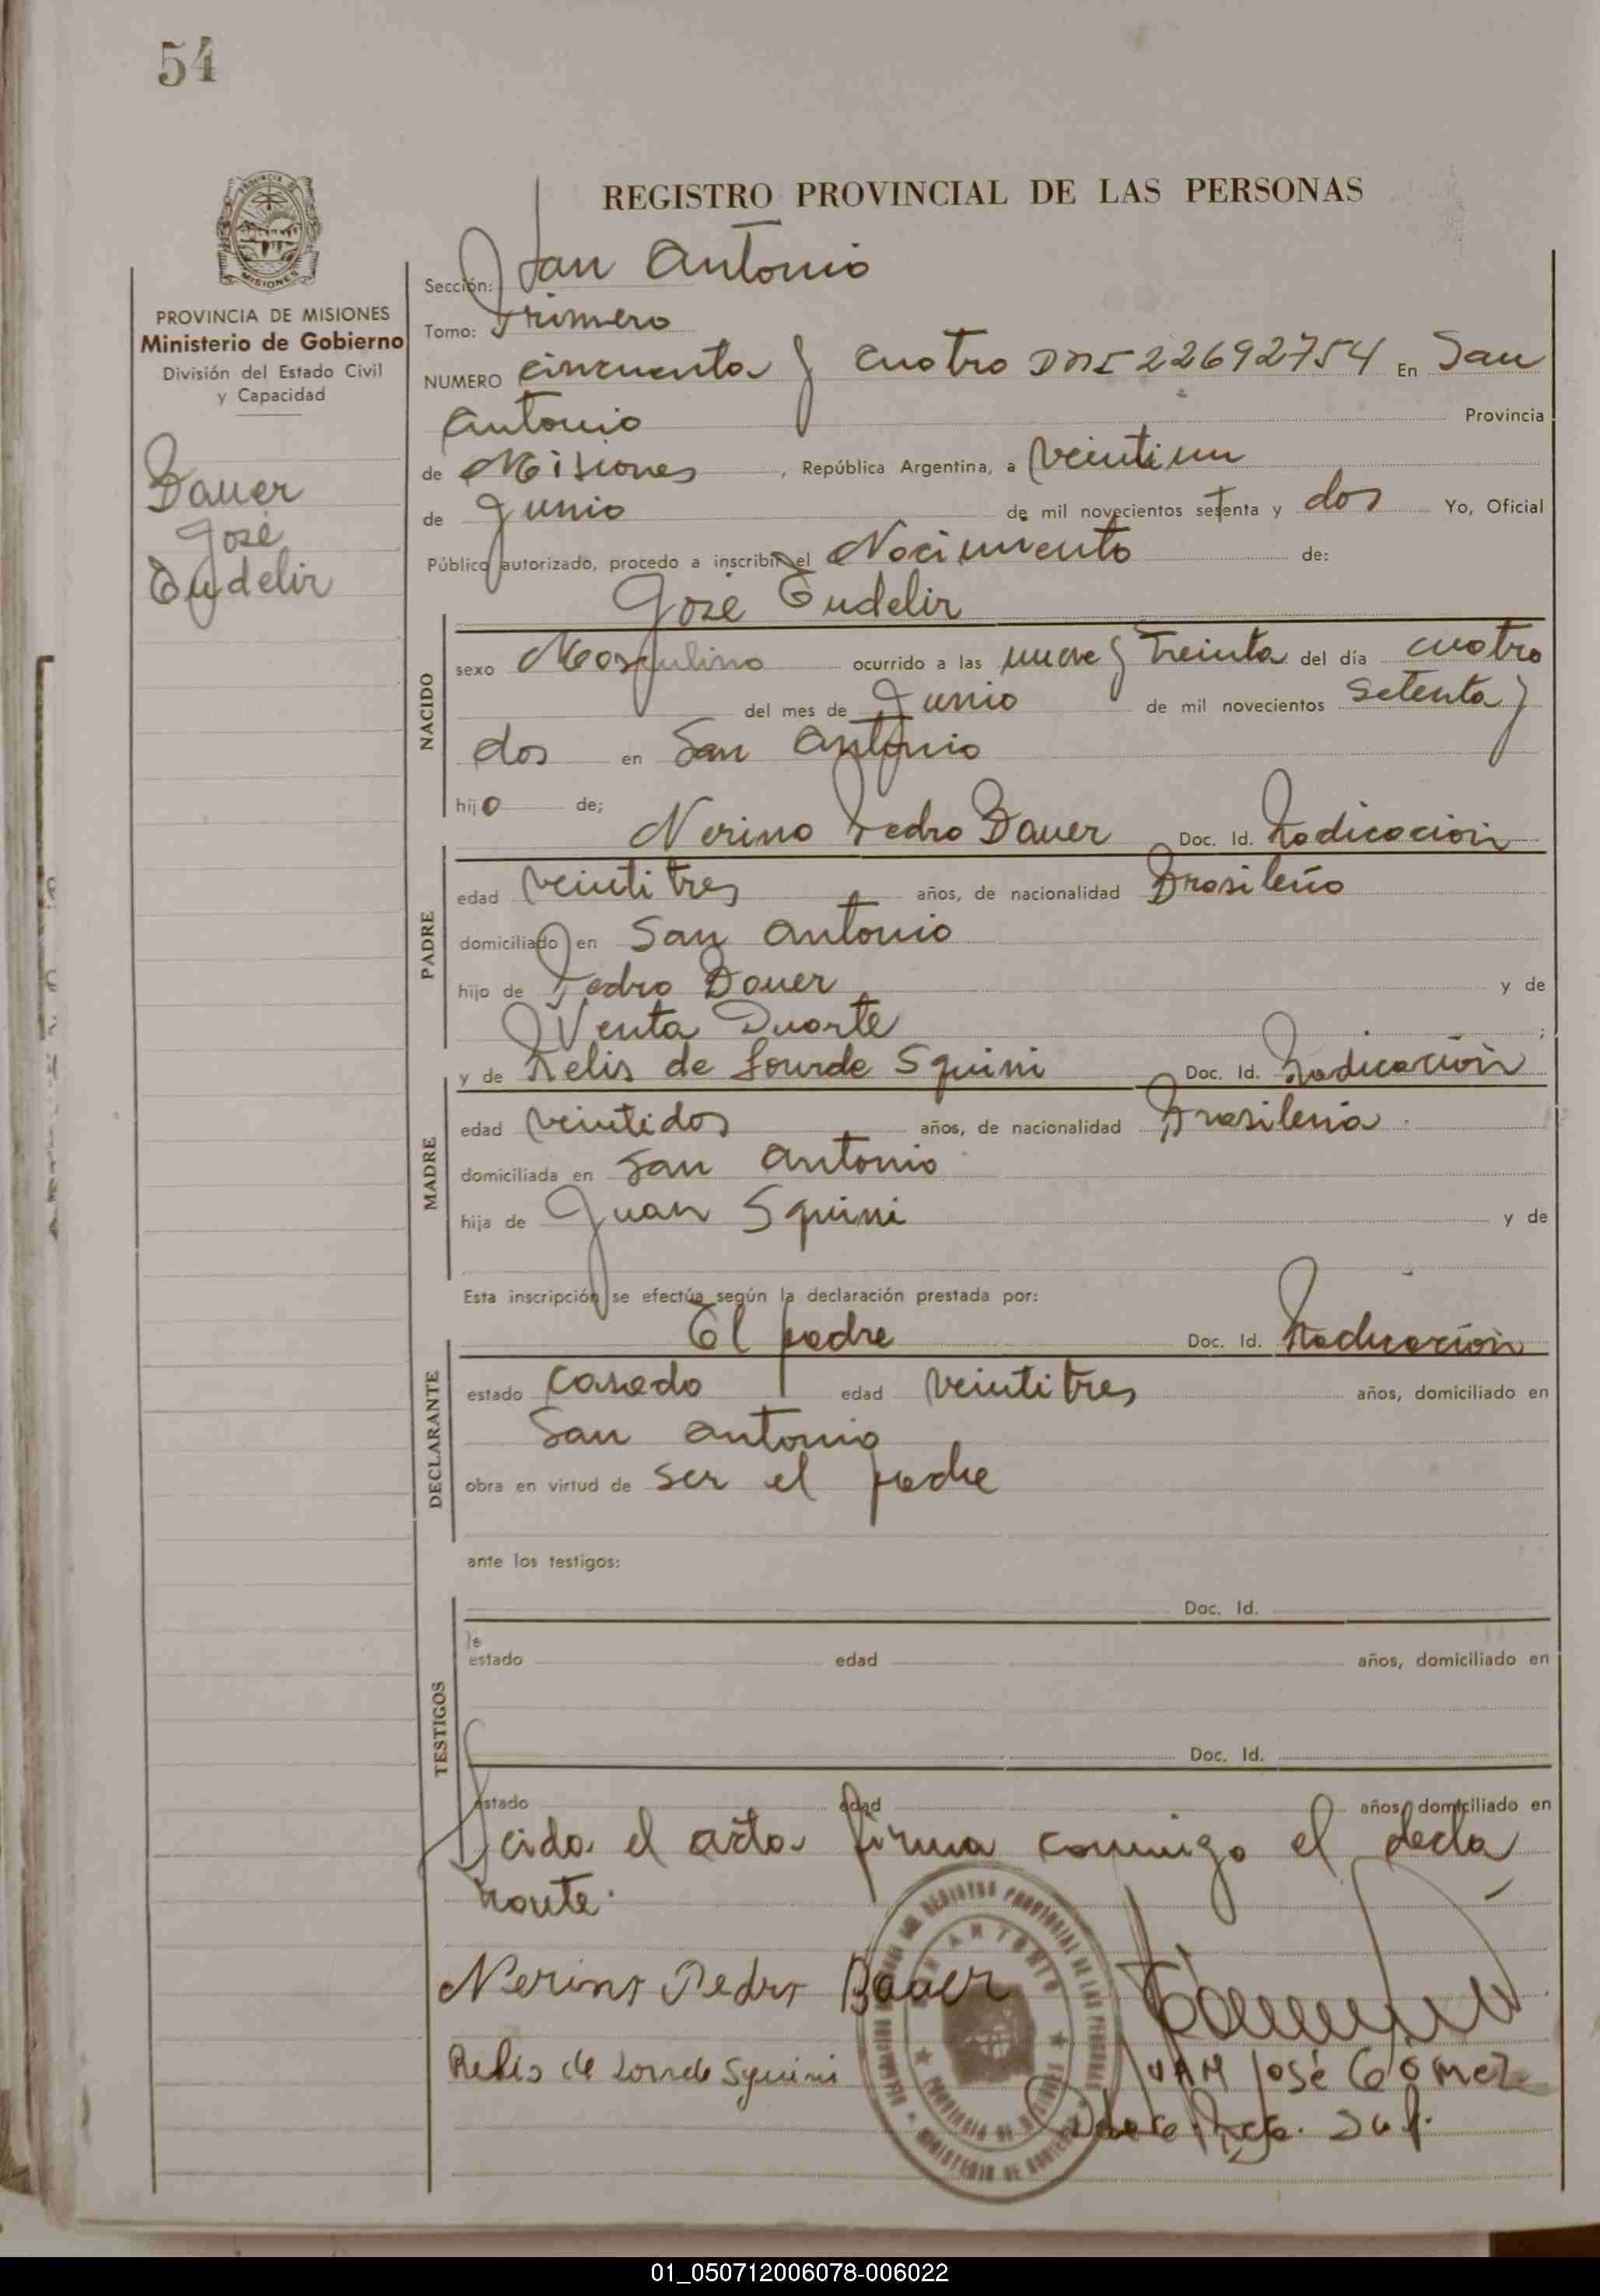 54
REGISTRO PROVINCIAL DE LAS PERSONAS
PROVINCIA DE MISIONES
Ministerio de Gobierno
División del Estado Civil
y Capacidad
Bauer
José
Eudelir
Sección: San Antonio
Tomo: Primero
NUMERO cincuenta y cuatro DNI 22692754 En San
Antonio Provincia
de Misiones, República Argentina, a veintiun
de Junio de mil novecientos setenta y dos Yo, Oficial
Público autorizado, procedo a inscribir el Nacimiento de:
José Eudelir
NACIDO
sexo Masculino ocurrido a las nueve y Treinta del día cuatro
del mes de Junio de mil novecientos setenta y
dos en San Antonio
hijo de;
Nerino Pedro Bauer Doc. Id. Radicación
PADRE
edad veintitres años, de nacionalidad Brasileño
domiciliado en San Antonio
hijo de Pedro Bauer y de
Venta Duarte ;
y de Relis de Lourde Squini Doc. Id. Radicación
MADRE
edad veintidos años, de nacionalidad Brasileña
domiciliada en San Antonio
hija de Juan Squini y de
Esta inscripción se efectúa según la declaración prestada por:
El padre Doc. Id. Radicación
DECLARANTE
estado casado edad veintitres años, domiciliado en
San Antonio
obra en virtud de ser el padre
ante los testigos:
Doc. Id.
TESTIGOS
estado edad años, domiciliado en
Doc. Id.
estado edad años, domiciliado en
Leida el acta firma conmigo el decla
rante.
Nerino Pedro Bauer
Relis de Lourde Squini
JUAN José GÓMEZ
01_050712006078-006022